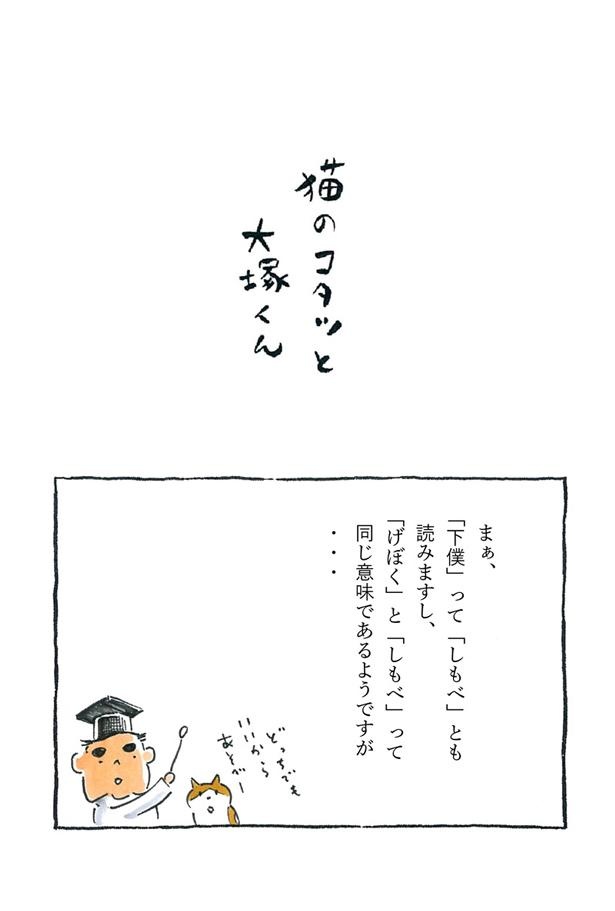 猫のコタツと
大塚くん
まぁ、
「下僕」って「しもべ」とも
読みますし、
「げぼく」と「しもべ」って
同じ意味であるようですが
・・・
どっちでも
いいから
あそべー